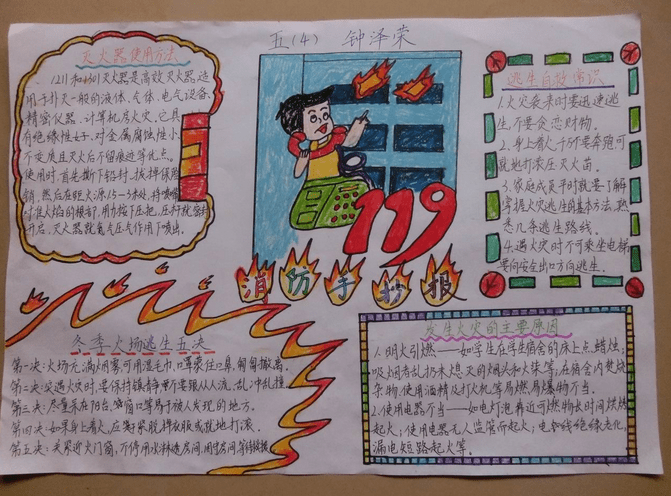 五(4) 钟泽荣
灭火器使用方法
1211和1301灭火器是高效灭火器,适
用于扑灭一般的液体、气体、电气设备、
精密仪器、计算机房火灾。它具
有绝缘性好、对金属腐蚀性小、
不变质且灭火后不留痕迹等优点。
使用时,首先撕下铅封、拔掉保险
销,然后在距火源1.5—3米处,将喷嘴
对准火焰的根部,用力按下压把,压
开启,灭火器就氮气压气作用下喷出。
119
消防手抄报
逃生自救常识
1.火灾袭来时要迅速逃
生,不要贪恋财物。
2.身上着火,千万不要奔跑可
就地打滚压灭火苗。
3.家庭成员平时就要了解
掌握火灾逃生的基本方法,熟
悉几条逃生路线。
4.遇火灾时不可乘坐电梯,
要向安全出口方向逃生。
冬季火场逃生五决
第一决:火场充满烟雾,可用湿毛巾、口罩捂住口鼻,匍匐撤离。
第二决:突遇火灾时,要保持镇静,千万不要跟从人流,乱冲乱撞。
第三决:尽量呆在阳台、窗口等易于被人发现的地方。
第四决:如果身上着火,应赶紧脱掉衣服或就地打滚。
第五决:关紧近火门窗,不停用水淋透房间,固守房间等待救援。
发生火灾的主要原因
1.明火引燃——如学生在学生宿舍的床上点蜡烛;
吸烟者乱扔未熄灭的烟头和火柴等,在宿舍内焚烧
杂物,使用酒精及打火机等易燃易爆物不当。
2.使用电器不当——如电灯泡靠近可燃物长时间烘烤
起火;使用电器无人监管而起火;电气线绝缘老化,
漏电短路起火等。